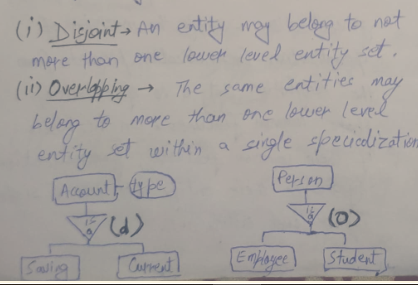 (i) Disjoint → An entity may belong to not
more than one lower level entity set.
(ii) Overlapping → The same entities may
belong to more than one lower level
entity set within a single specialization
Account type Person
is a (d) is a (0)
Saving Current Employee Student